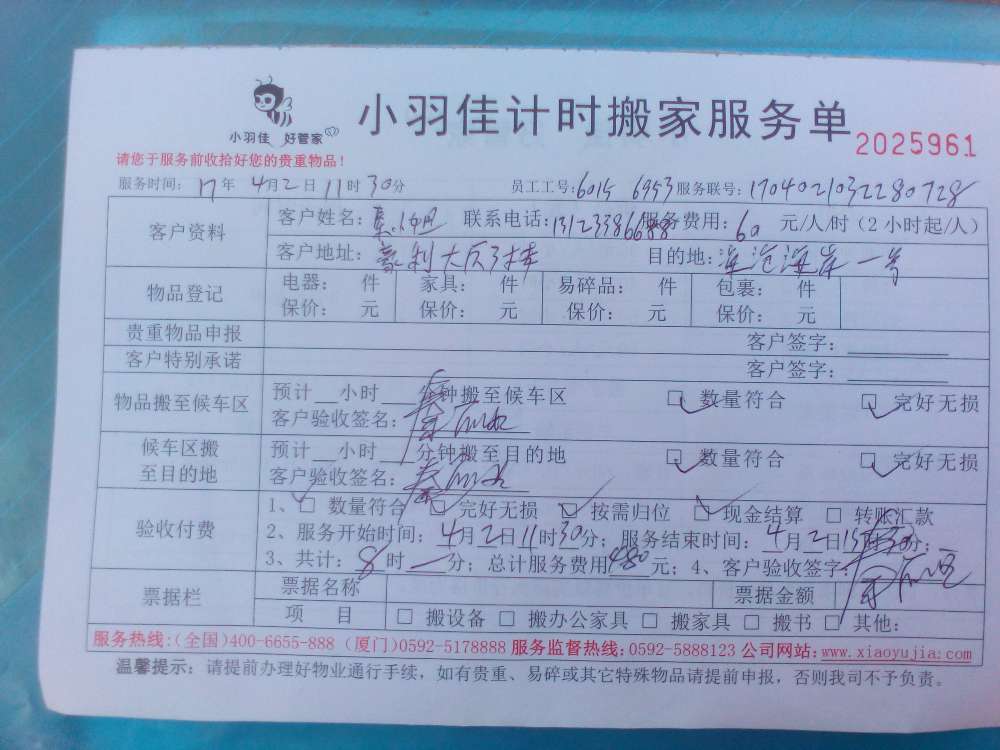 小羽佳 好管家
小羽佳计时搬家服务单
2025961
请您于服务前收拾好您的贵重物品！
服务时间：17年4月2日11时30分 员工工号：6015 6953 服务联号：1704021032280728
客户资料
客户姓名： 联系电话：13123386688 服务费用：60元/人/时（2小时起/人）
客户地址：豪利大厦3楼 目的地：海沧海岸一号
物品登记
电器： 件 家具： 件 易碎品： 件 包裹： 件
保价： 元 保价： 元 保价： 元 保价： 元
贵重物品申报 客户签字：
客户特别承诺 客户签字：
物品搬至候车区
预计__小时__分钟搬至候车区 □ 数量符合 □ 完好无损
客户验收签名：
候车区搬
至目的地
预计__小时__分钟搬至目的地 □ 数量符合 □ 完好无损
客户验收签名：
验收付费
1、□ 数量符合 □ 完好无损 □ 按需归位 □ 现金结算 □ 转账汇款
2、服务开始时间：4月2日11时30分；服务结束时间：4月2日15时30分；
3、共计：8时一分；总计服务费用480元；4、客户验收签字：
票据栏
票据名称 票据金额
项 目 □ 搬设备 □ 搬办公家具 □ 搬家具 □ 搬书 □ 其他：
服务热线:(全国)400-6655-888 (厦门)0592-5178888 服务监督热线:0592-5888123 公司网站:www.xiaoyujia.com
温馨提示：请提前办理好物业通行手续，如有贵重、易碎或其它特殊物品请提前申报，否则我司不予负责。